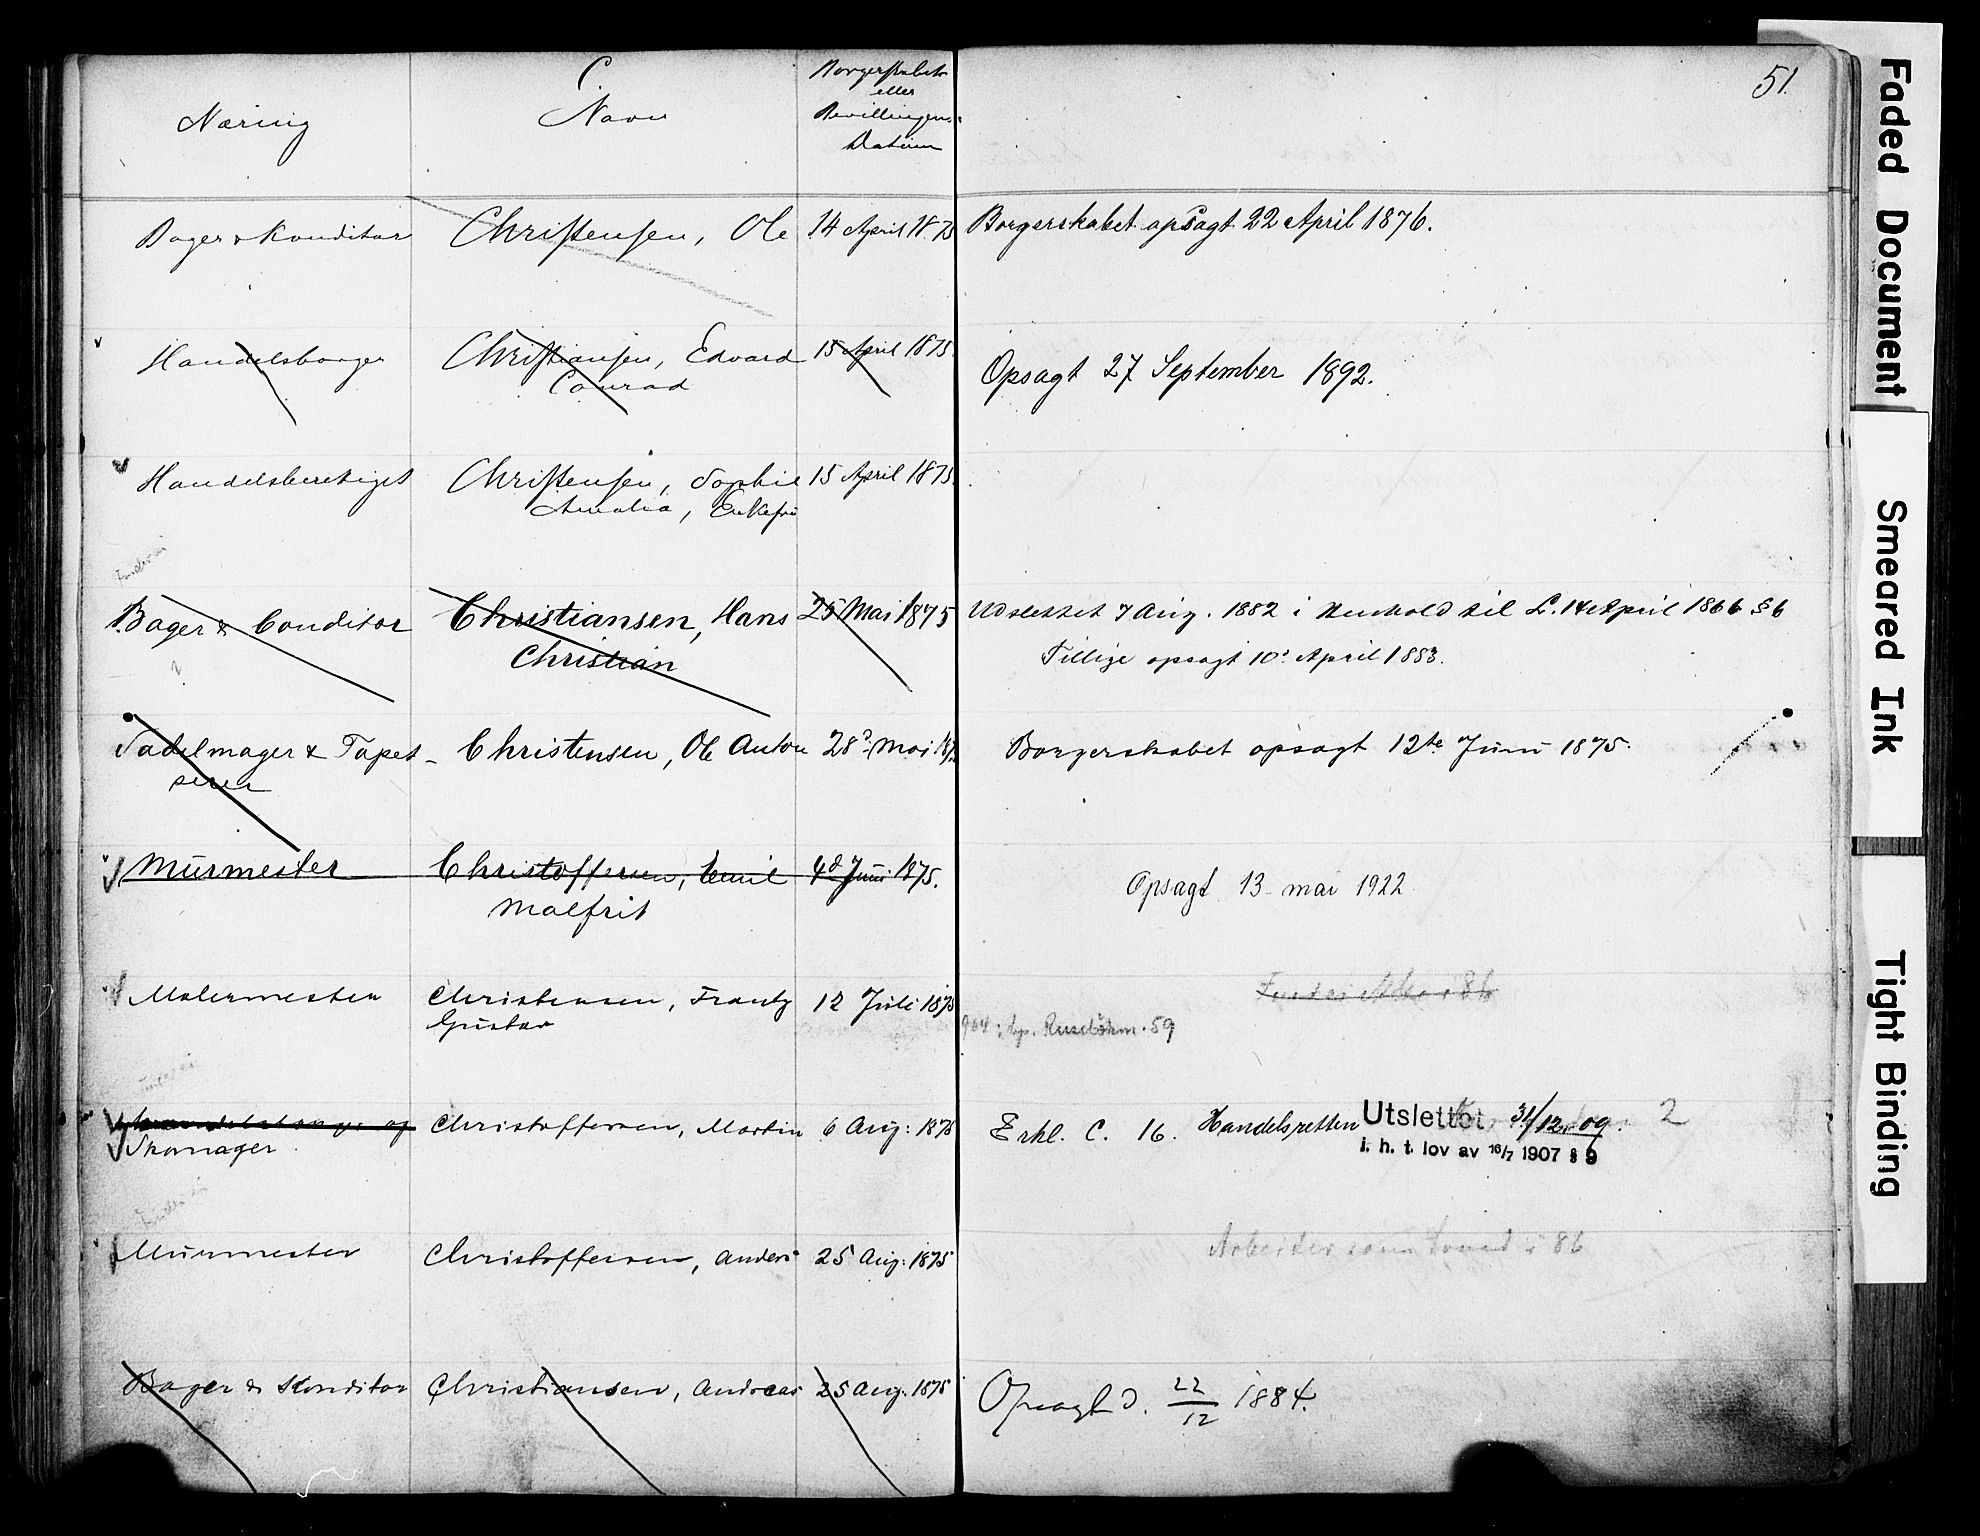 C
51.
Næring
Navn
Borgerskabets
eller
Bevillingens
Datum
Bager & Konditor Christensen, Ole 14 April 1875 Borgerskabet opsagt 22 April 1876.
Handelsborger Christiansen, Edvard 15 April 1875. Opsagt 27 September 1892.
Conrad
Handelsberettiget Christensen, Sophie 15 April 1875.
Amalia, Enkefru
Bager & Conditor Christiansen, Hans 25 Mai 1875 Udslettet 7 Aug. 1882 i Henhold til L. 14 April 1866 § 6
Christian Tillige opsagt 10 April 1883.
Sadelmager & Tapet- Christensen, Ole Anton 28 Mai 1875 Borgerskabet opsagt 12te Juni 1875.
serer
Murmester Christoffersen, Emil 4d Juni 1875. Opsagt 13 mai 1922
Malfrit
Malermester Christensen, Frantz 12 Juli 1875
Gustav 59
Skomager Christoffersen, Martin 6 Aug: 1875 Erkl. C. 16. Handelsretten Utslettet 31/12 09. 2
i. h. t. lov av 16/7 1907 § 9
Murmester Christoffersen, Anders 25 Aug: 1875 Arbeider som Svend i 86
Bager & Konditor Christiansen, Andreas 25 Aug: 1875 Opsagt d. 22/12 1884.
Faded Document
Smeared Ink
Tight Binding